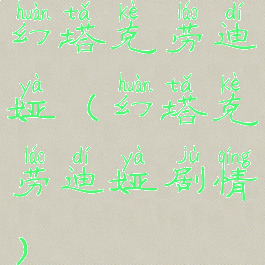 huàn tǎ kè láo dí
幻塔克劳迪
yà huàn tǎ kè
娅（幻塔克
láo dí yà jù qíng
劳迪娅剧情
）